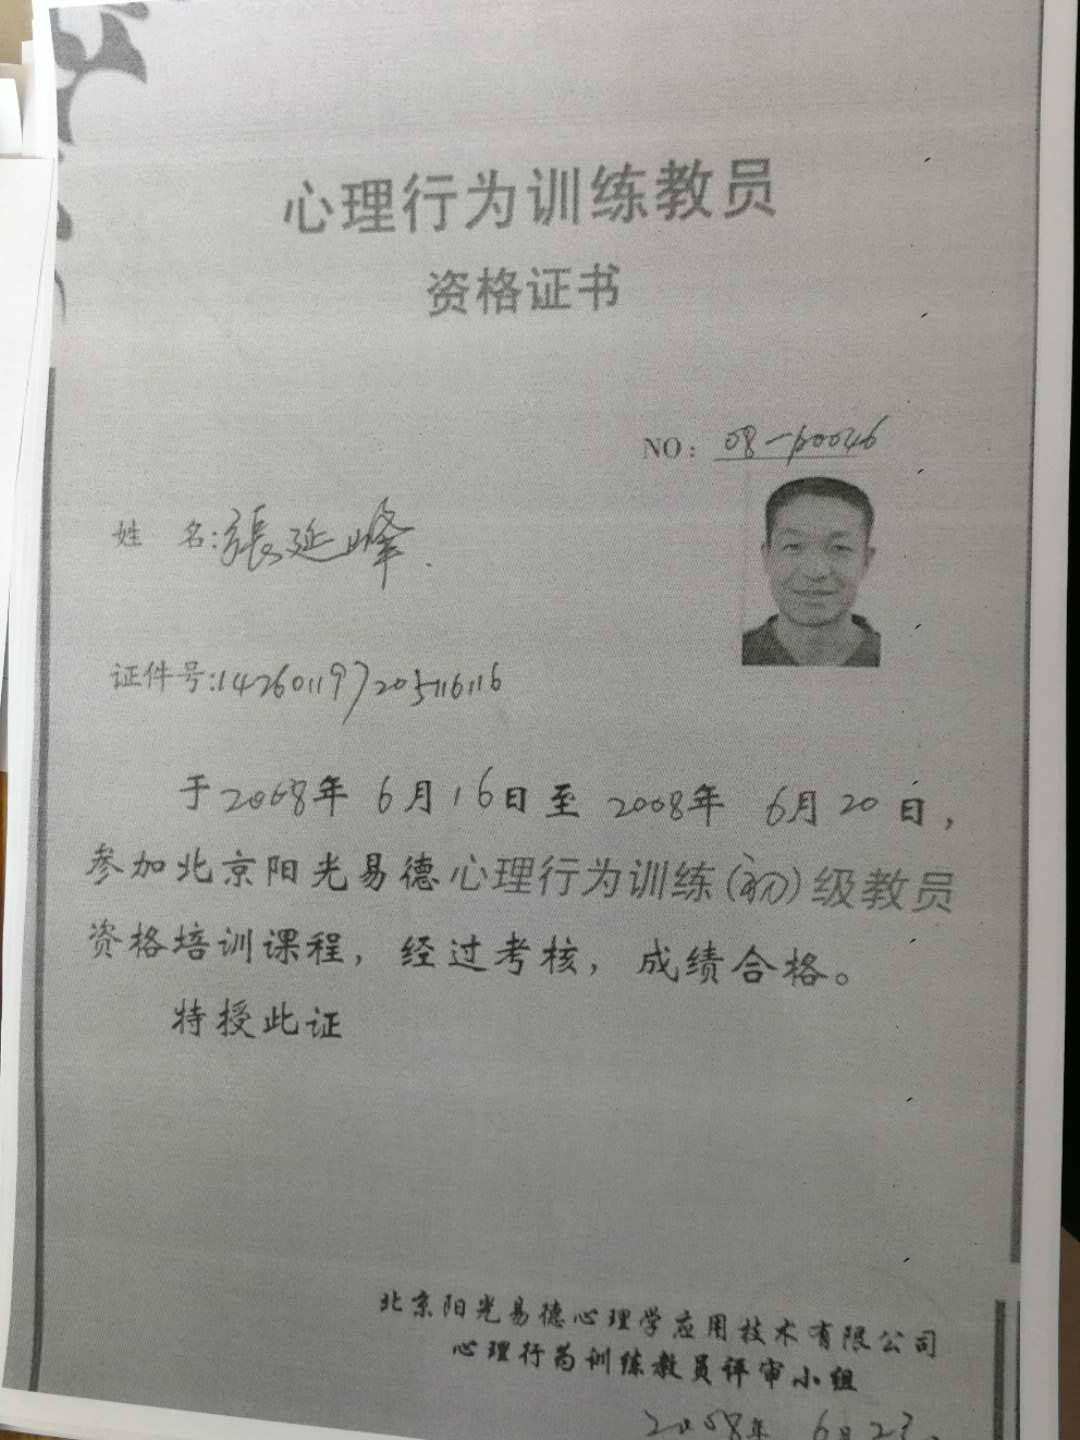 心理行为训练教员
资格证书
NO: 08-p0046
姓 名:張延峰.
证件号:142601197205116116
于2008年 6月16日至 2008年 6月20日,
参加北京阳光易德心理行为训练(初)级教员
资格培训课程, 经过考核, 成绩合格。
特授此证
北京阳光易德心理学应用技术有限公司
心理行为训练教员评审小组
2008年 6月23